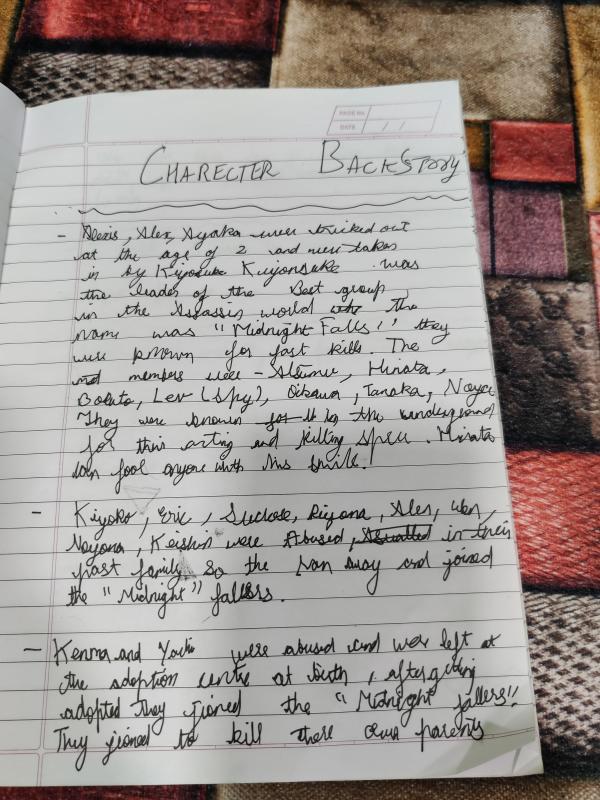 PAGE No.
DATE / /
CHARECTER BACKSTORY
- Alexis, Alex, Ayaka were kicked out
at the age of 2 and were taken
in by Kiyosuke was
the leader of the Best group
in the Assassin world The
name was "Midnight Falls!" they
were known for fast kills. The
members were - Atsumu, Hinata,
Bokuto, Lev (spy), Oikawa, Tanaka, Noya
They were known by the underground
for this acting and killing spree. Hinata
can fool anyone with his smile.
- Kiyoko, Eric, Riyona, Alex,
Nayona, Keishin were Abused, in their
past family so the ran away and joined
the "Midnight" fallers.
- Kenma and Yachi were abused and wer left at
the adoption centre at birth, after getting
adopted they jioned the "Midnight fallers!!
They jioned to kill there own parents